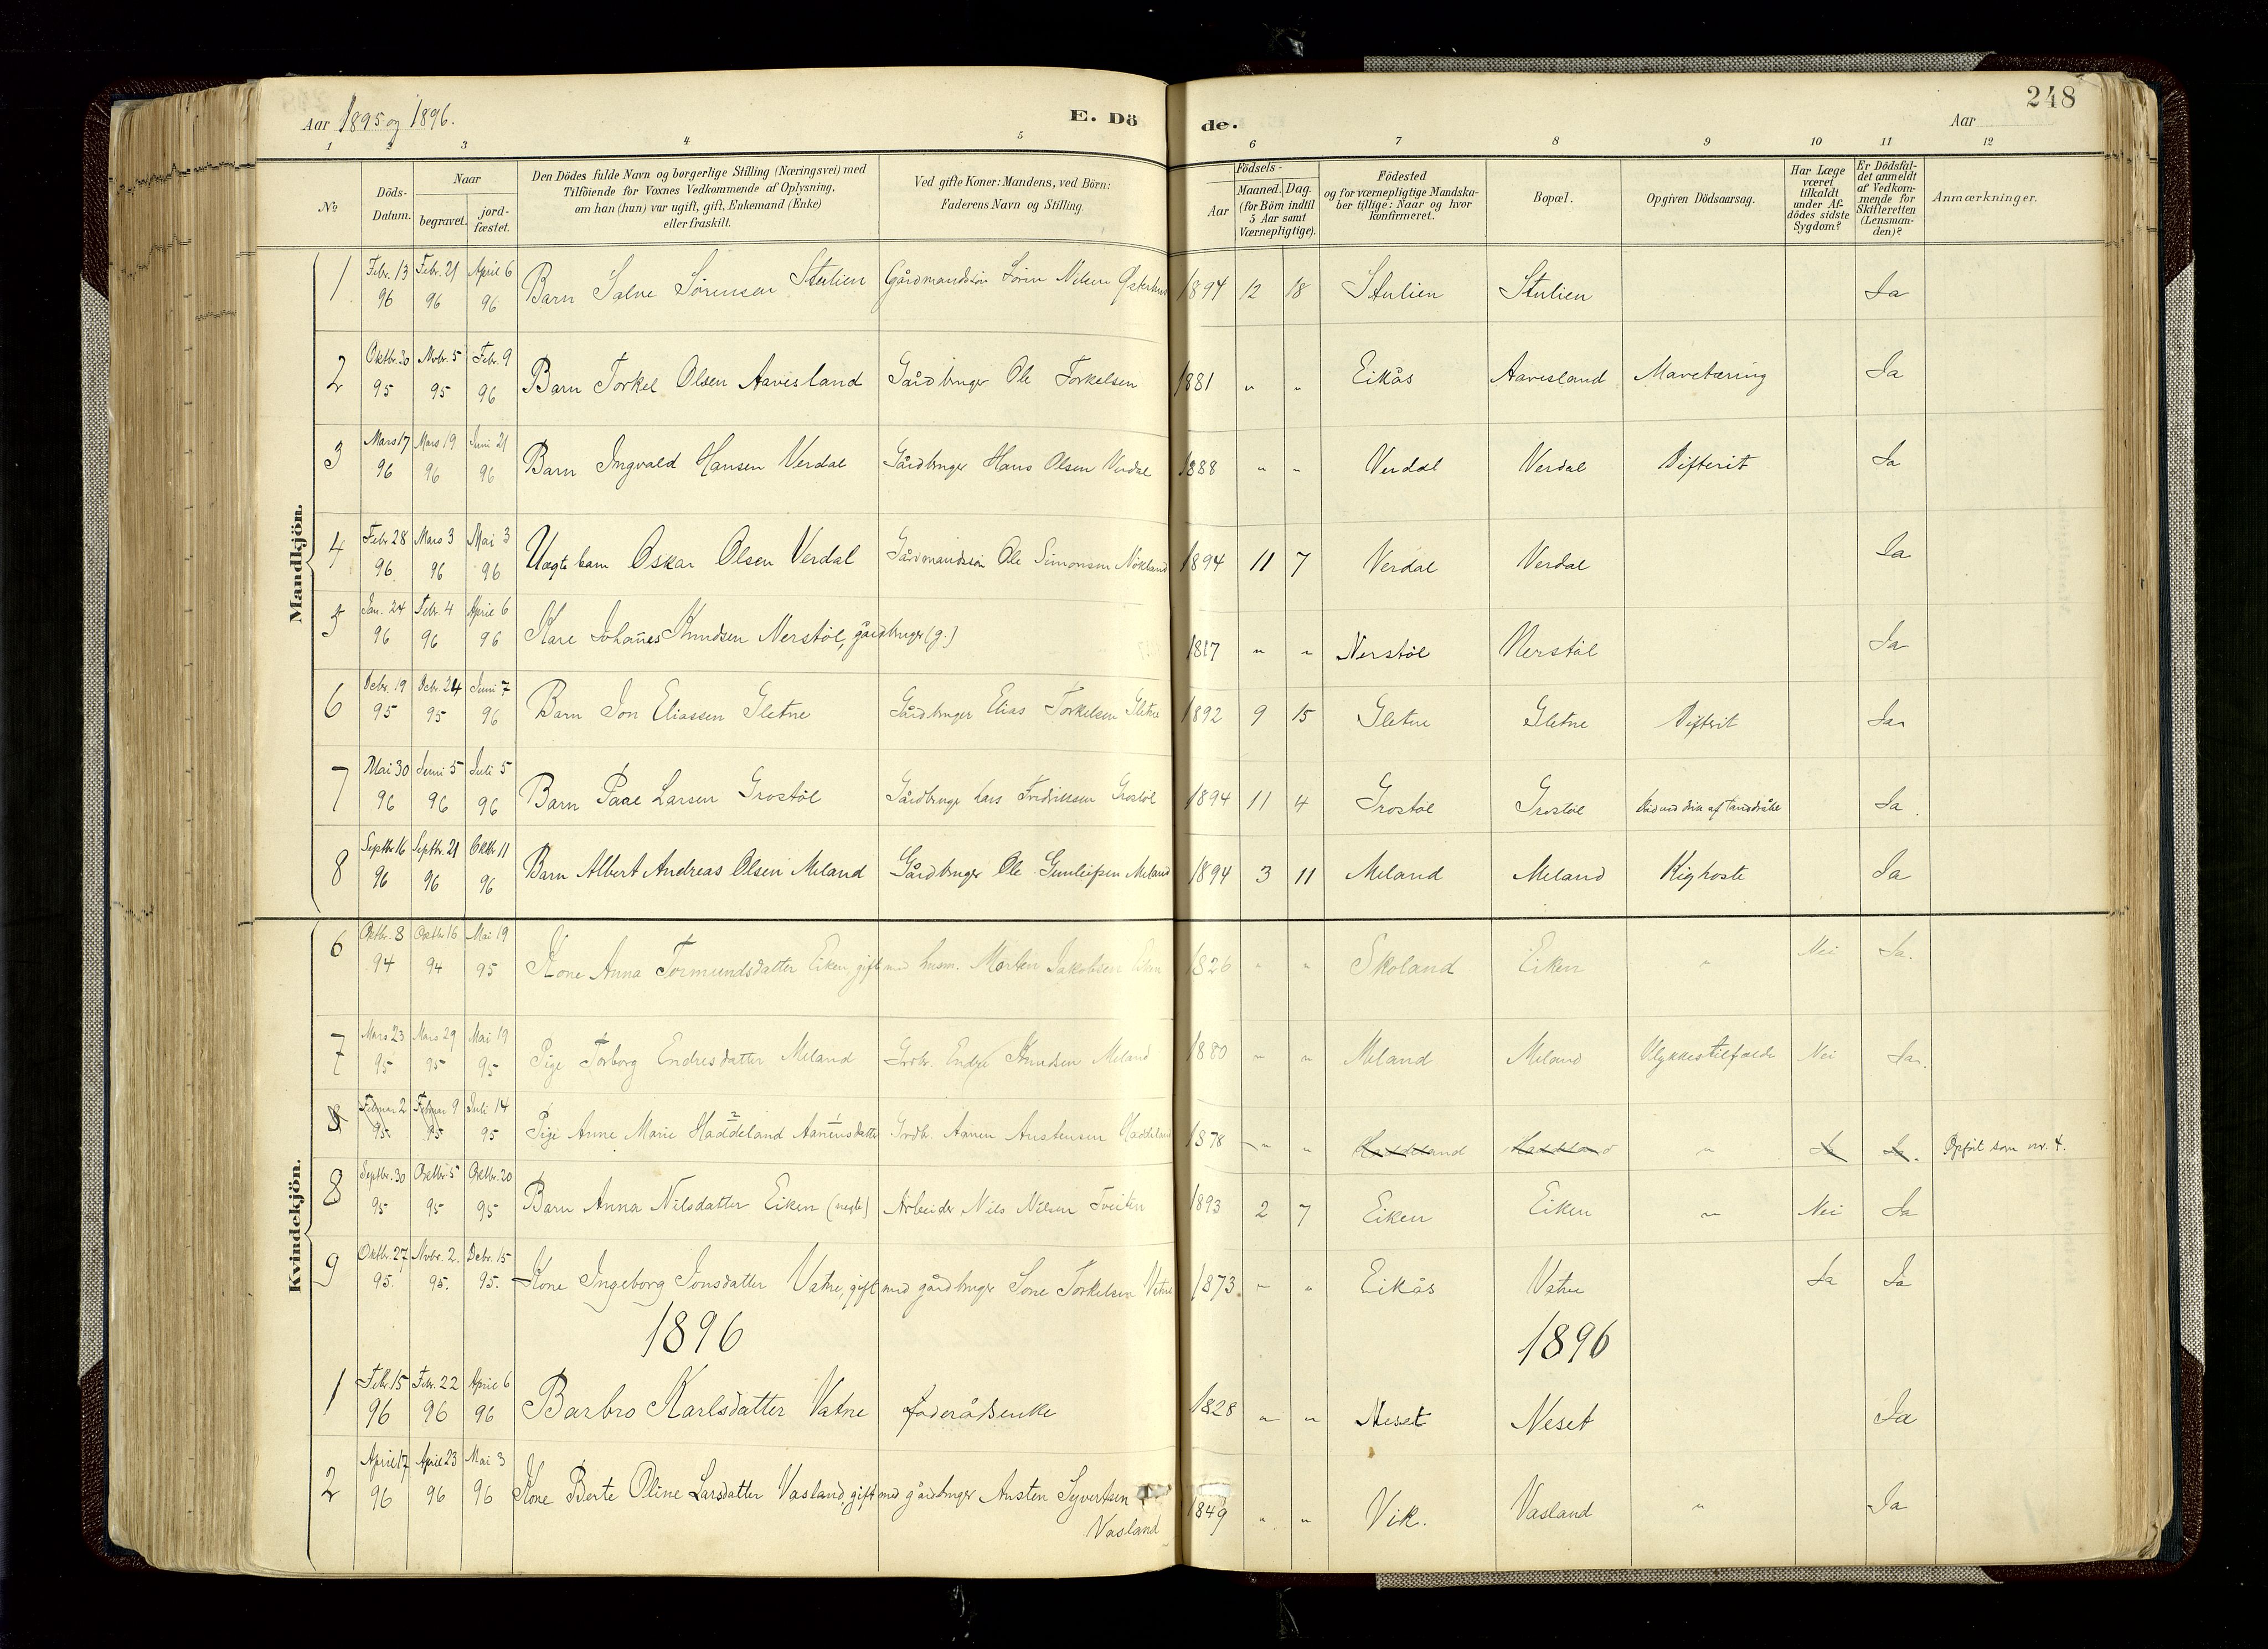 248
Aar 1895 og 1896.
E. Dö de.
Aar
1 2 3 4 5 6 7 8 9 10 11 12
№
Döds-Datum.
Naar
begravet.
jord-fæstet.
Den Dödes fulde Navn og borgerlige Stilling (Næringsvei) med
Tilföiende for Voxnes Vedkommende af Oplysning,
om han (hun) var ugift, gift, Enkemand (Enke)
eller fraskilt.
Ved gifte Koner: Mandens, ved Börn:
Faderens Navn og Stilling.
Födsels-
Aar
Maaned. Dag.
(for Börn indtil
5 Aar samt
Værnepligtige).
Födested
og for værnepligtige Mandska-
ber tillige: Naar og hvor
konfirmeret.
Bopæl.
Opgiven Dödsaarsag.
Har Læge
været
tilkaldt
under Af-
dödes sidste
Sygdom?
Er Dödsfal-
det anmeldt
af Vedkom-
mende for
Skifteretten
(Lensman-
den)?
Anmærkninger.
Mandkjön.
1 Febr. 13 96 Febr. 21 96 April 6 96 Barn Salve Sörensen Stulien Gårdmandssön Sörin Nilsen 1894 12 18 Stulien Stulien Ja
2 Oktbr. 30 95 Nvbr. 5 95 Febr. 9 96 Barn Torkel Olsen Aavesland Gårdbruger Ole Torkelsen 1881 " " Eikås Aavesland Mavetæring Ja
3 Mars 17 96 Mars 19 96 Juni 21 96 Barn Ingvald Hansen Verdal Gårdbruger Hans Olsen Verdal 1888 " " Verdal Verdal Difterit Ja
4 Febr 28 96 Mars 3 96 Mai 3 96 Uægte barn Oskar Olsen Verdal Gårdmandssön Ole Simonsen Nökland 1894 11 7 Verdal Verdal Ja
5 Jan. 24 96 Febr. 4 96 April 6 96 Kare Johannes Knudsen Nerstöl, gårdbruger (g.) 1817 " " Nerstöl Nerstöl Ja
6 Debr. 19 95 Debr. 24 95 Juni 7 96 Barn Jon Eliassen Gletne Gårdbruger Elias Torkelsen Gletne 1892 9 15 Gletne Gletne Difterit Ja
7 Mai 30 96 Juni 5 96 Juli 5 96 Barn Paal Larsen Grostöl Gårdbruger Lars Fredriksen Grostöl 1894 11 4 Grostöl Grostöl Ja.
8 Septbr. 16 96 Septbr. 21 96 Oktbr 11 96 Barn Albert Andreas Olsen Meland Gårdbruger Ole Gunleifsen Meland 1894 3 11 Meland Meland Kighoste Ja
Kvindekjön.
6 Oktbr. 8 94 Oktbr 16 94 Mai 19 95 Kone Anna Tormundsdatter Eiken, gift med husm. Morten Jakobsen Eiken 1826 " " Skoland Eiken " Nei Ja.
7 Mars 23 95 Mars 29 95 Mai 19 95 Pige Torborg Endresdatter Meland Grdbr. Endre Knudsen Meland 1880 " " Meland Meland Ulykkestilfælde Nei Ja.
8 Februar 2 95 Februar 9 95 Juli 14 95 Pige Anne Marie Haddeland Aanensdatter Grdbr. Aanen Austensen Haddeland 1878 " " Haddeland Haddeland " Ja Ja. Opfört som nr. 4.
8 Septbr. 30 95 Oktbr 5 95 Oktbr. 20 95 Barn Anna Nilsdatter Eiken (uegte) Arbeider Nils Nilsen Tveiten 1893 2 7 Eiken Eiken " Nei Ja
9 Oktbr. 27 95. Nvbr. 2. 95. Debr. 15 95. Kone Ingeborg Jonsdatter Vatne, gift med gårdbruger Tore Torkelsen Vatne 1873. " " Eikås Vatne Ja Ja
1896 1896
1 Febr. 15 96 Febr. 22 96 April 6 96 Barbro Karlsdatter Vatne foderådsenke 1828 " " Neset Neset Ja
2 April 17 96 April 23 96 Mai 3 96 Kone Berte Oline Larsdatter Vasland, gift med gårdbruger Austen Syvertsen
Vasland 1849 " " Vik. Vasland " Ja